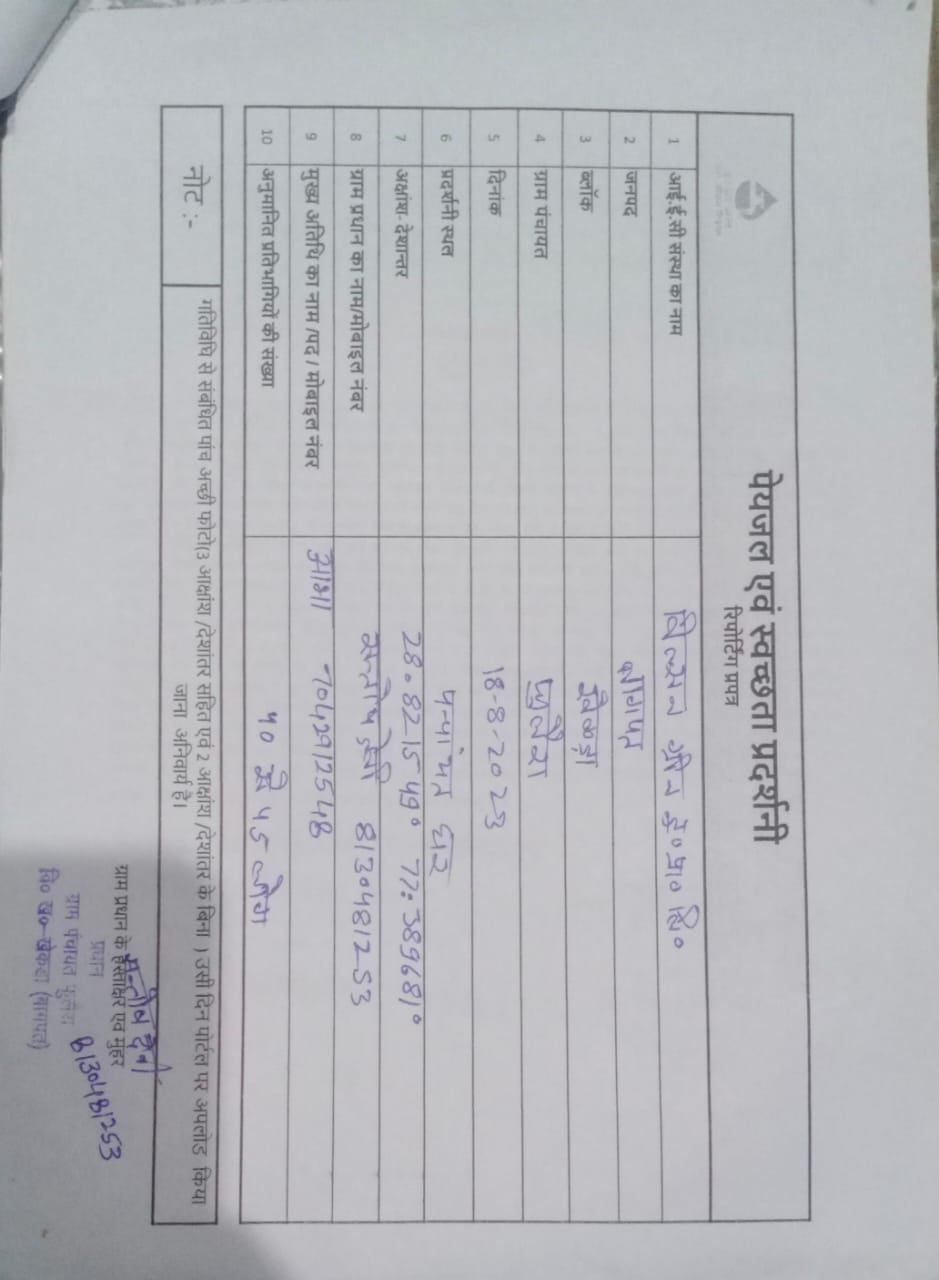 पेयजल एवं स्वच्छता प्रदर्शनी
रिपोर्टिंग प्रपत्र
1 आई.ई.सी संस्था का नाम
2 जनपद बागपत
3 ब्लॉक खेकड़ा
4 ग्राम पंचायत फुलैरा
5 दिनांक 18-8-2023
6 प्रदर्शनी स्थल पन्चायत घर
7 अक्षांश- देशान्तर 28.821549° 77.389681°
8 ग्राम प्रधान का नाम/मोबाइल नंबर सन्तोष देवी 8130481253
9 मुख्य अतिथि का नाम /पद / मोबाइल नंबर आशा 7042912548
10 अनुमानित प्रतिभागियों की संख्या 40 से 45 लोग
नोट :- गतिविधि से संबंधित पांच अच्छी फोटो(3 आक्षांश /देशांतर सहित एवं 2 आक्षांश /देशांतर के बिना ) उसी दिन पोर्टल पर अपलोड किया
जाना अनिवार्य है।
सन्तोष देवी
ग्राम प्रधान के हस्ताक्षर एवं मुहर
8130481253
प्रधान
ग्राम पंचायत फुलैरा
वि० ख०-खेकडा (बागपत)